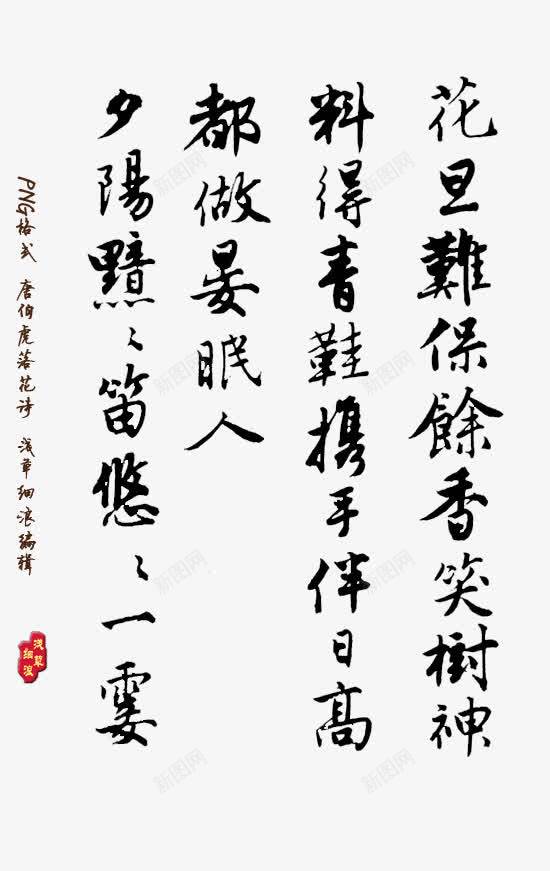 花旦難保餘香笑樹神
料得青鞋携手伴日高
都做晏眠人
夕陽黯〻笛悠〻一霎
PNG格式 唐伯虎落花诗 浅草细浪编辑
浅草
细浪
新图网